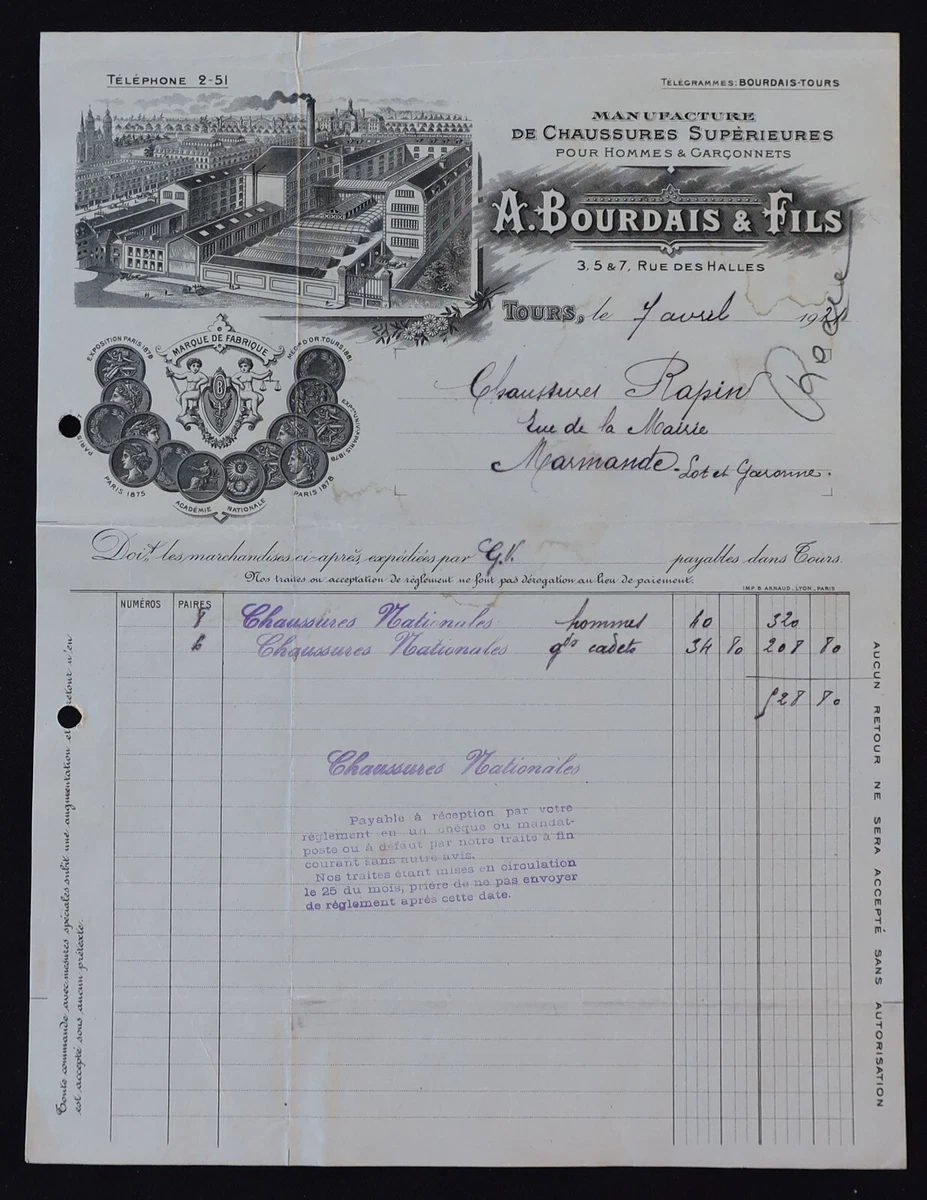 TÉLÉPHONE 2-51
TÉLÉGRAMMES: BOURDAIS-TOURS
MANUFACTURE
DE CHAUSSURES SUPÉRIEURES
POUR HOMMES & GARÇONNETS
A. BOURDAIS & FILS
3, 5 & 7, RUE DES HALLES
TOURS, le 7 avril 192
MARQUE DE FABRIQUE
EXPOSITION PARIS 1878
MÉD. D'OR. TOURS 1881
PARIS 1875
ACADÉMIE NATIONALE
PARIS 1878
EXPON UNIVLE PARIS 1878
Chaussures Rapin
Rue de la Mairie
Marmande - Lot et Garonne.
Doit les marchandises ci-après, expédiées par G.V. payables dans Tours.
Nos traites ou acceptation de règlement ne font pas dérogation au lieu de paiement.
IMP. B. ARNAUD, LYON, PARIS
NUMÉROS PAIRES
8 Chaussures Nationales hommes 40 320
6 Chaussures Nationales gds cadets 34 80 208 80
528 80
Chaussures Nationales
Payable à réception par votre
règlement en un chèque ou mandat-
poste ou à défaut par notre traite à fin
courant sans autre avis.
Nos traites étant mises en circulation
le 25 du mois, prière de ne pas envoyer
de règlement après cette date.
Toute commande avec mesures spéciales subit une augmentation et retour n'en
est accepté sous aucun prétexte.
AUCUN RETOUR NE SERA ACCEPTÉ SANS AUTORISATION